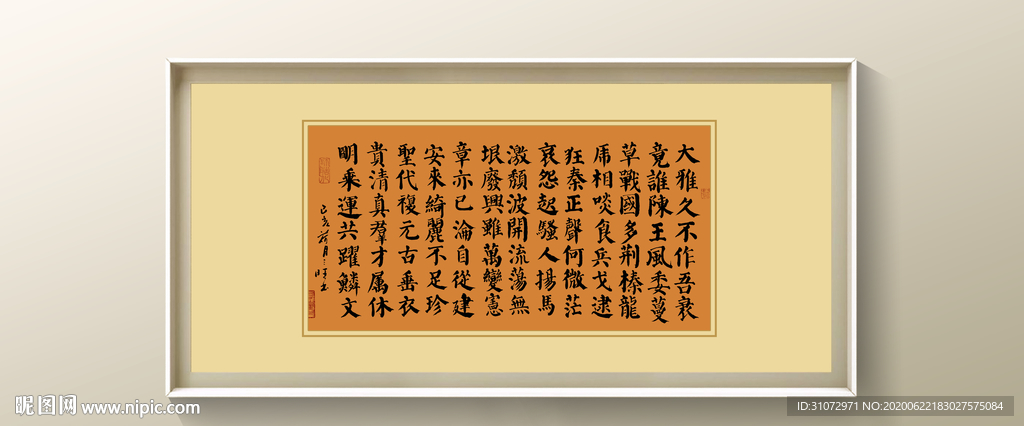 大雅久不作吾衰
竟誰陳王風委蔓
草戰國多荆榛龍
虎相啖食兵戈逮
狂秦正聲何微茫
哀怨起騷人揚馬
激頹波開流蕩無
垠廢興雖萬變憲
章亦已淪自從建
安來綺麗不足珍
聖代複元古垂衣
貴清真羣才属休
明乘運共躍鱗文
己亥荷月
昵图网 www.nipic.com
ID:31072971 NO:20200622183027575084